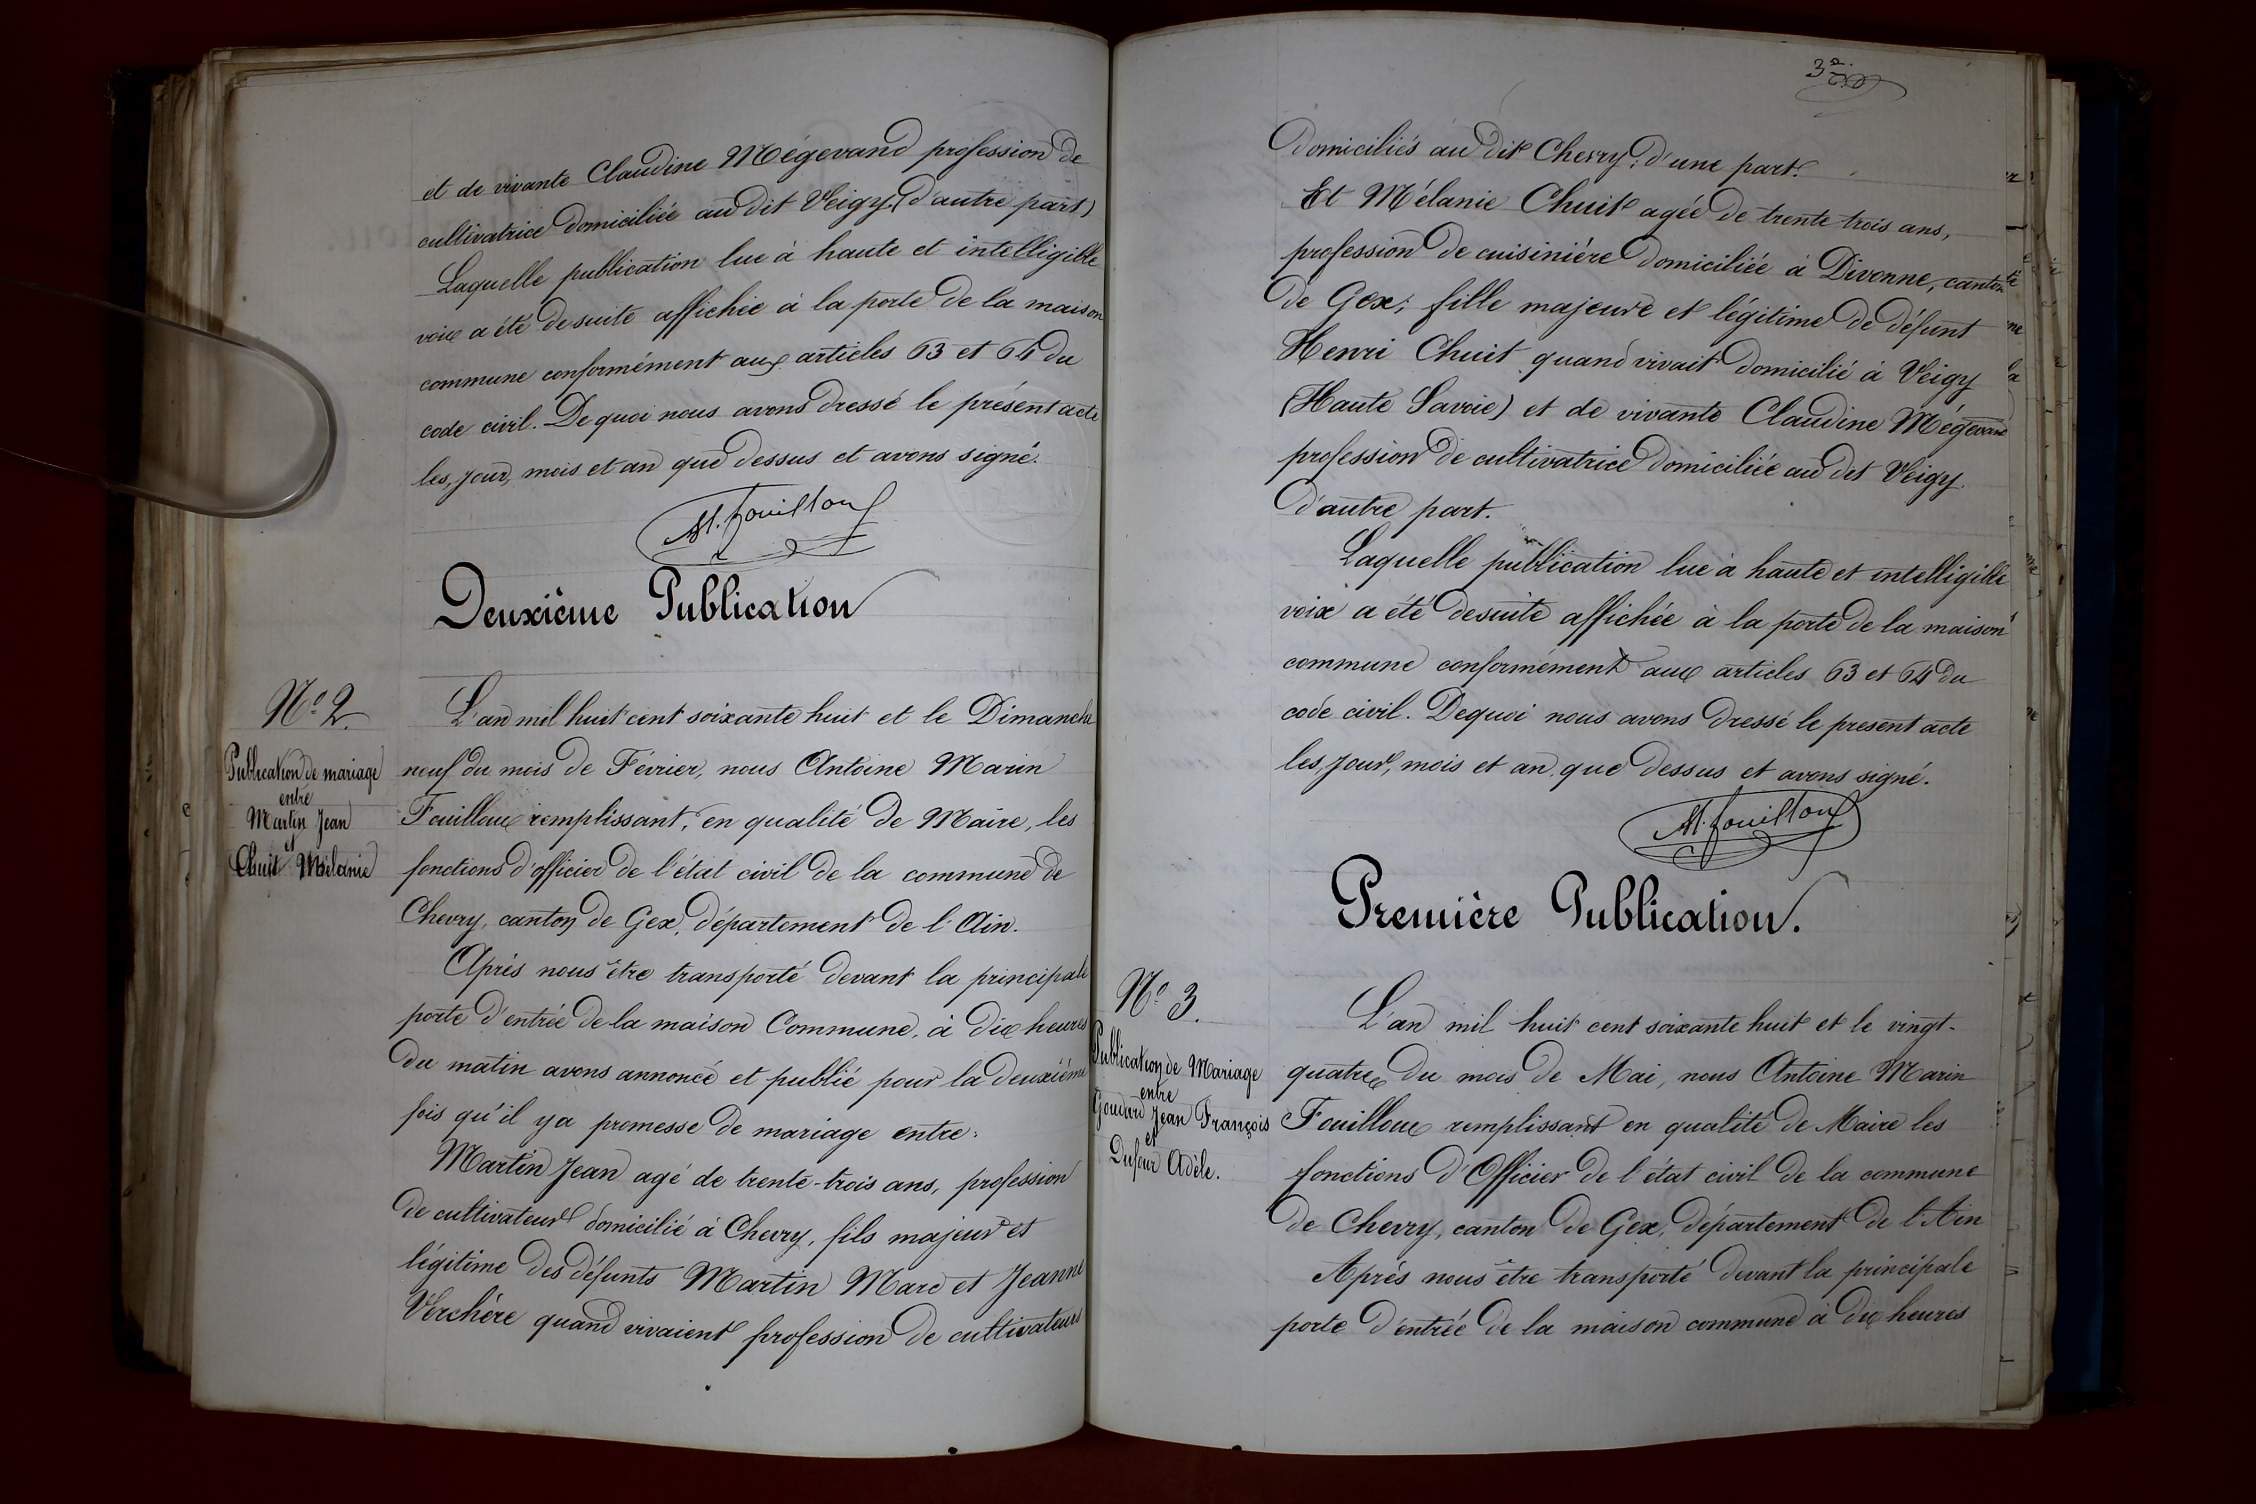 et de vivante Claudine Mégevand profession de
cultivatrice domiciliée au dit Veigy, (d'autre part)
Laquelle publication lue à haute et intelligible
voix a été desuite affichée à la porte de la maison
commune conformément aux articles 63 et 64 du
code civil. De quoi nous avons dressé le présent acte
les, jour, mois et an que dessus et avons signé.
M. fouilloux
Deuxième Publication
Nº 2.
Publication de mariage
entre
Martin Jean
et
Chuit Mélanie
L'an mil huit cent soixante huit et le Dimanche
neuf du mois de Février, nous Antoine Marin
Fouilloux remplissant, en qualité de Maire, les
fonctions d'officier de l'état civil de la commune de
Chevry, canton de Gex, département de l'Ain.
Après nous être transporté devant la principale
porte d'entrée de la maison Commune, à dix heures
du matin avons annoncé et publié pour la deuxième
fois qu'il y a promesse de mariage entre:
Martin Jean agé de trente-trois ans, profession
de cultivateur domicilié à Chevry, fils majeur et
légitime des défunts Martin Marc et Jeanne
Verchère quand vivaient profession de cultivateurs
3
domiciliés au dit Chevry; d'une part.
Et Mélanie Chuit agée de trente trois ans,
profession de cuisinière domiciliée à Divonne, canton
de Gex; fille majeure et légitime de défunt
Henri Chuit quand vivait domicilié à Veigy
(Haute Savoie) et de vivante Claudine Mégevand
profession de cultivatrice domiciliée au det Veigy.
d'autre part.
Laquelle publication lue à haute et intelligible
voix a été desuite affichée à la porte de la maison
commune conformément aux articles 63 et 64 du
code civil. Dequoi nous avons dressé le present acte
les, jour, mois et an que dessus et avons signé.
M. fouilloux
Première Publication.
Nº 3.
Publication de Mariage
entre
Goudard Jean François
et
Dufour Adèle.
L'an mil huit cent soixante huit et le vingt-
quatre du mois de Mai, nous Antoine Marin
Fouilloux remplissant en qualité de Maire les
fonctions d'Officier de l'état civil de la commune
de Chevry, canton de Gex, département de l'Ain
Après nous être transporté devant la principale
porte d'entrée de la maison commune à dix heures